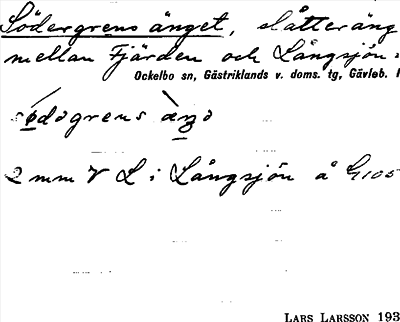 Södergrens änget, slåtteräng
mellan Fjärden och Långsjön.
Ockelbo sn, Gästriklands v. doms. tg, Gävleb.
2 mm V L i Långsjön å G105
LARS LARSSON 193